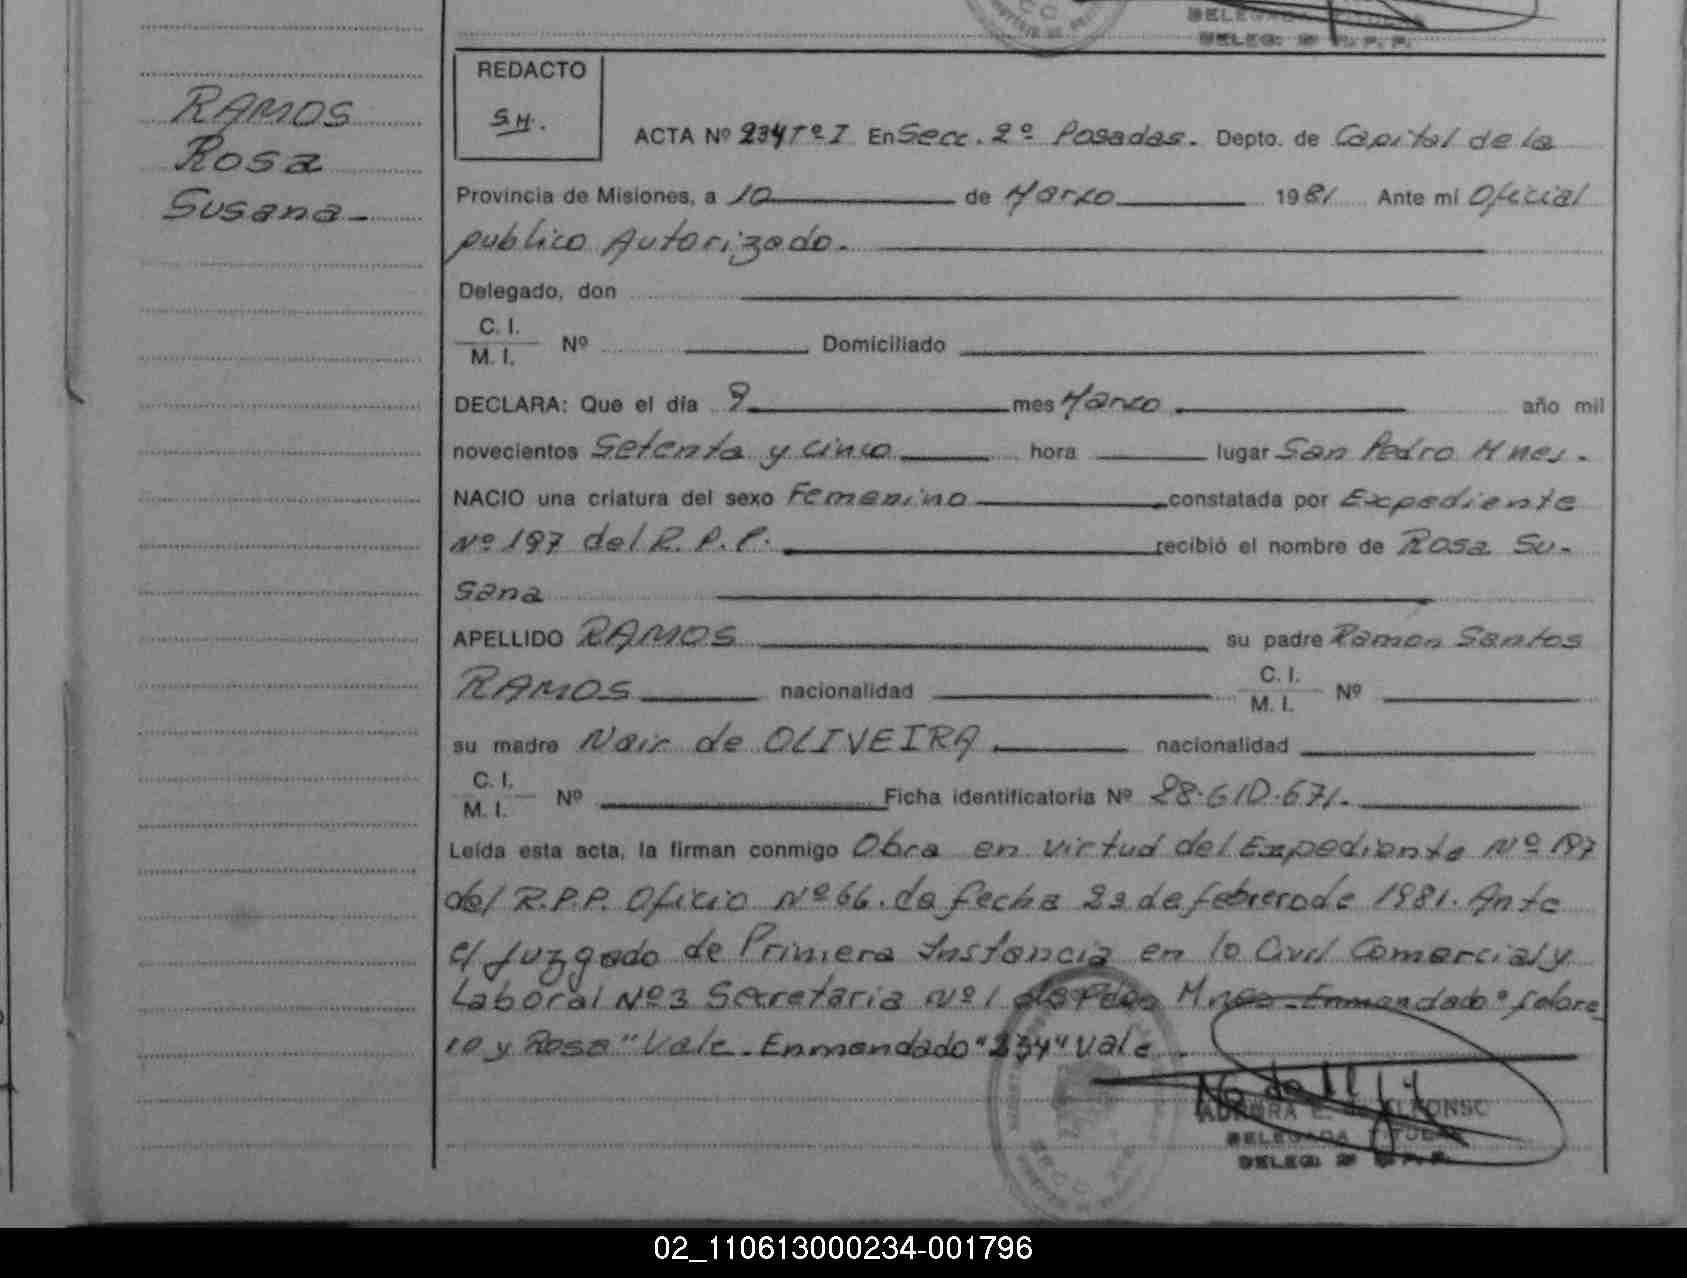 DELEGADA TITULAR
DELEG. 2ª R. P. P.
RAMOS
Rosa
Susana
REDACTO
S H.
ACTA Nº 234 Tº I En Secc. 2º Posadas. Depto. de Capital de la
Provincia de Misiones, a 10 de Marzo 1981 Ante mi Oficial
publico Autorizado.
Delegado, don
C. I.
M. I. Nº Domiciliado
DECLARA: Que el día 9 mes Marzo año mil
novecientos Setenta y cinco hora lugar San Pedro Mnes.
NACIO una criatura del sexo Femenino constatada por Expediente
Nº 197 del R. P. P. recibió el nombre de Rosa Su-
sana
APELLIDO RAMOS su padre Ramon Santos
RAMOS nacionalidad C. I.
M. I. Nº
su madre Nair de OLIVEIRA nacionalidad
C. I.
M. I. Nº Ficha identificatoria Nº 28.610.671.
Leída esta acta, la firman conmigo Obra en virtud del Expediente Nº 197
del R.P.P. Oficio Nº 66. de fecha 23 de febrero de 1981. Ante
el Juzgado de Primera Instancia en lo Civil Comercial y
Laboral Nº 3 Secretaria Nº 1 de Pdas Mnes. Enmendado "febre
ro y Rosa" Vale. Enmendado "234" vale.
AURORA E. ALFONSO
DELEGADA TITULAR
DELEG. 2ª R. P. P.
02_110613000234-001796